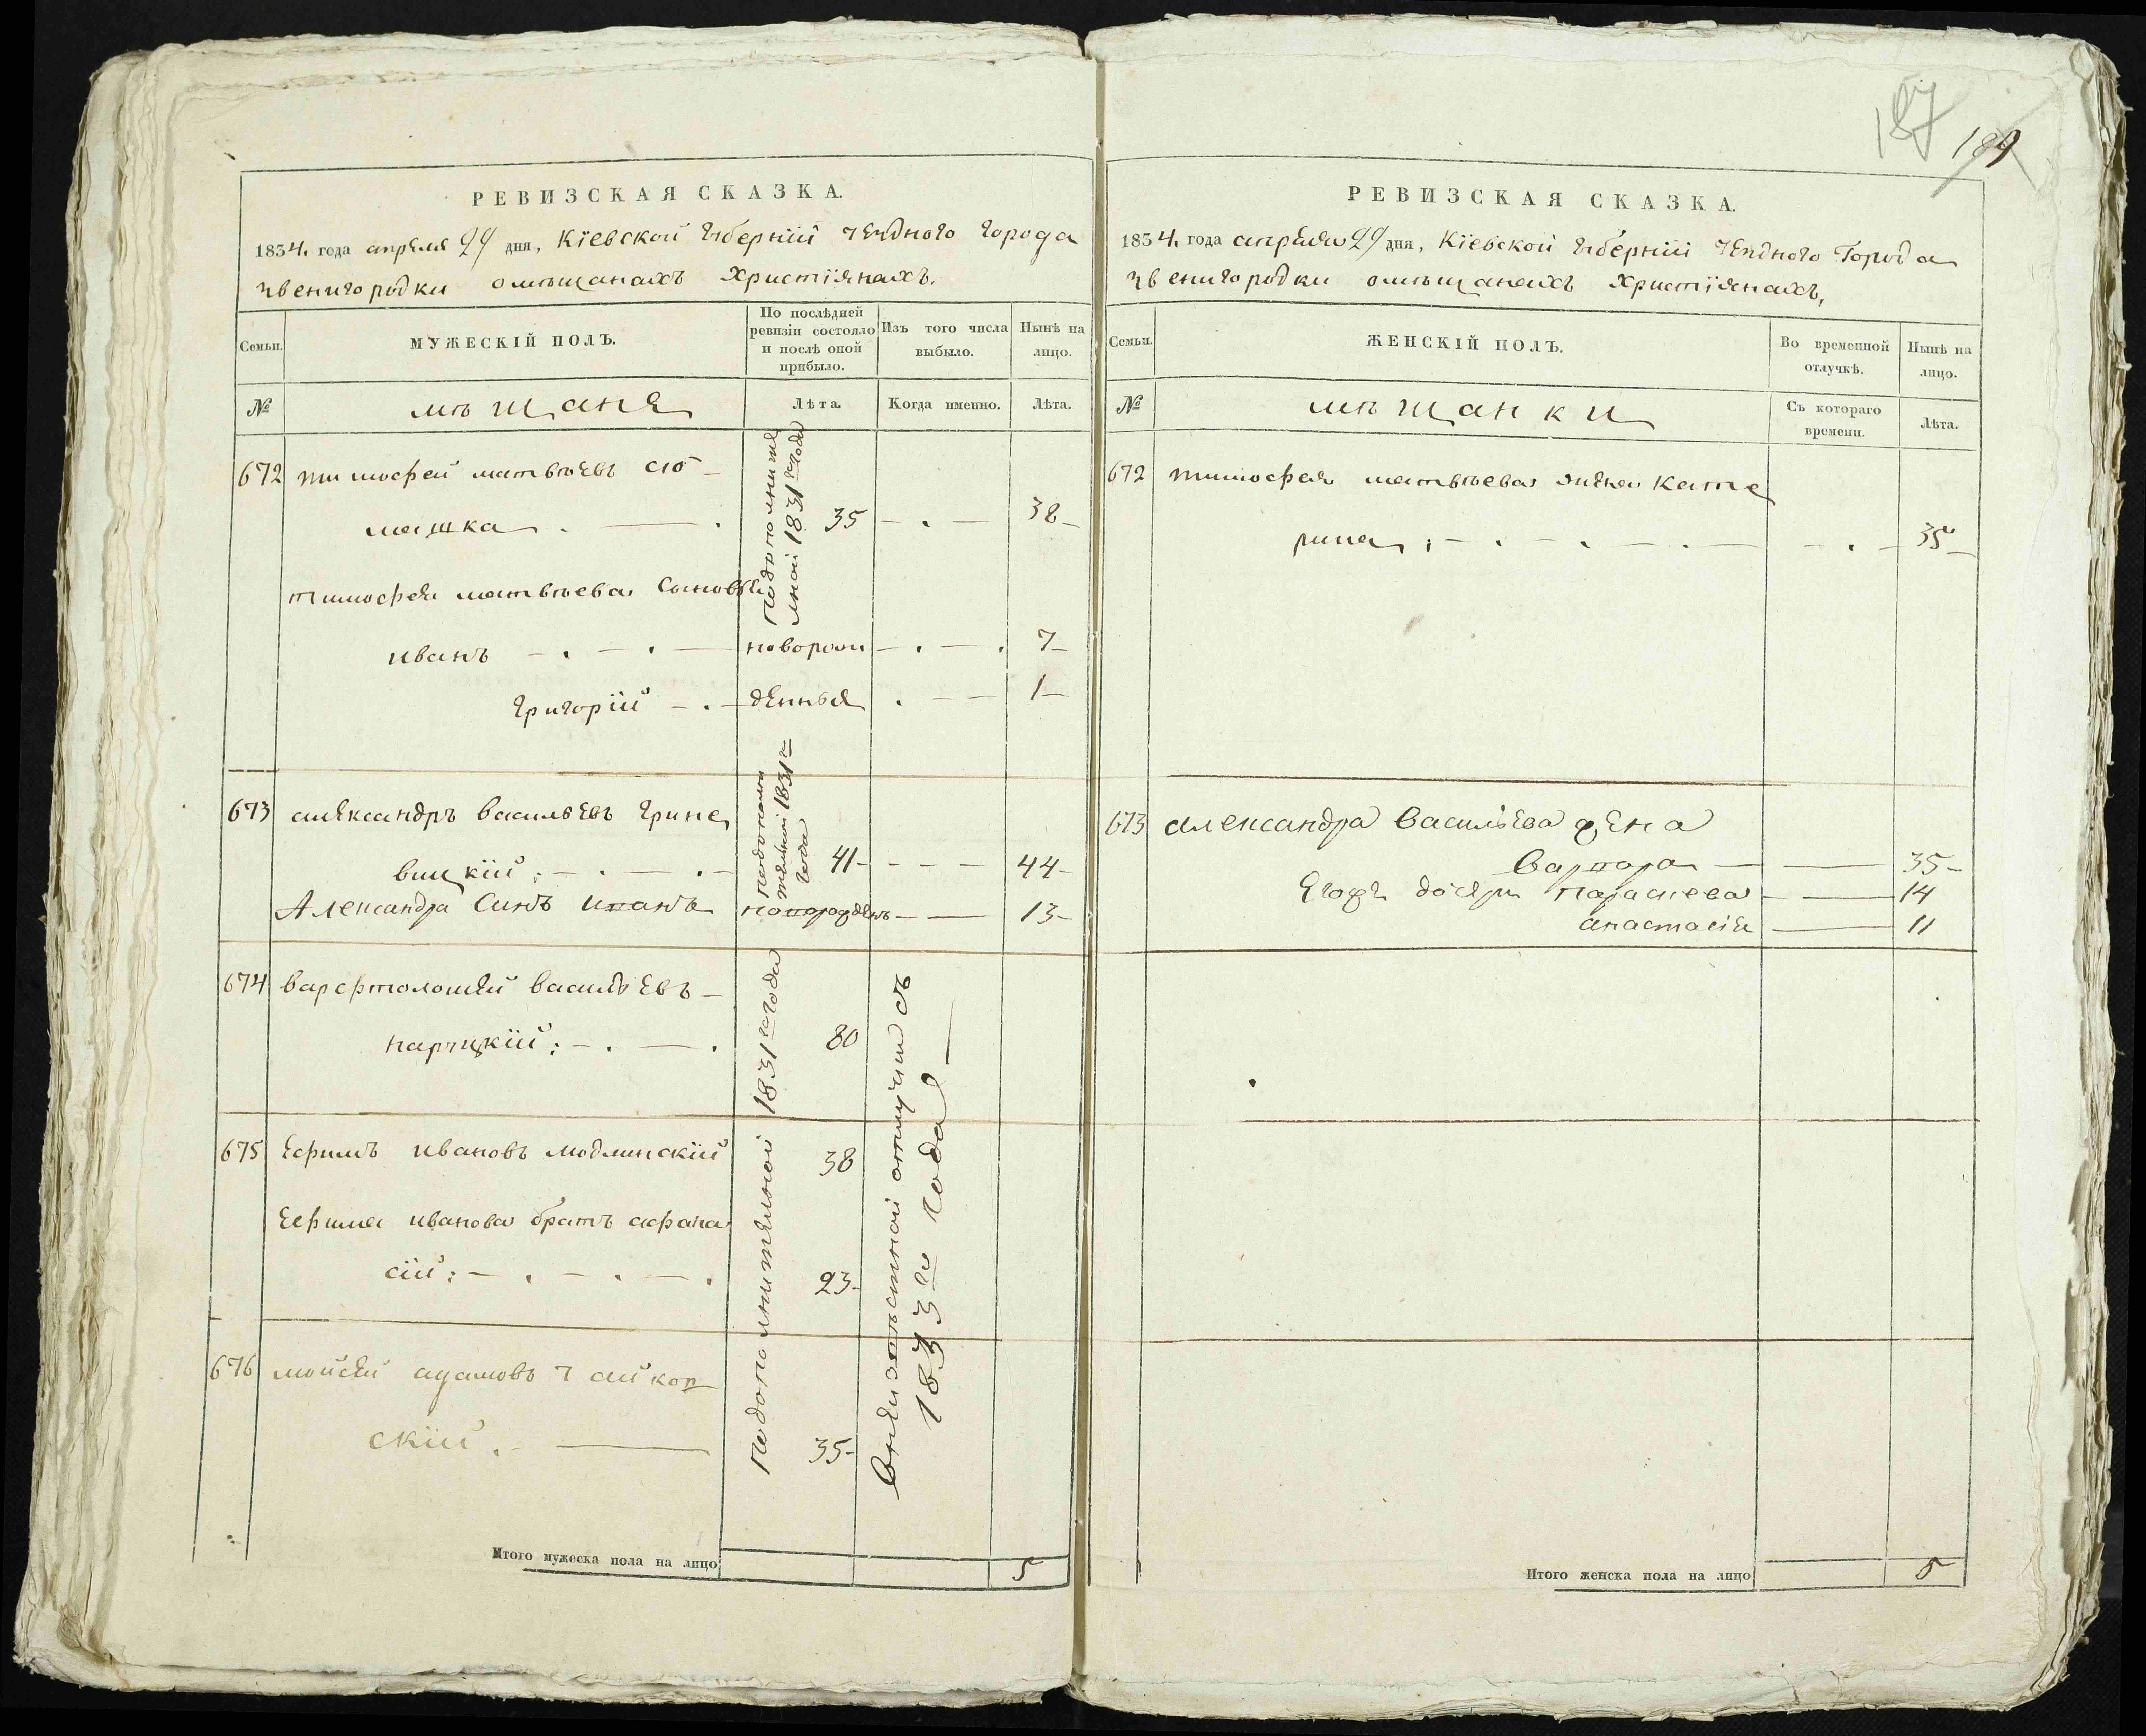 187 189
РЕВИЗСКАЯ СКАЗКА.
1834. года апреля 29 дня, Кіевской губерніи уезднаго города
звенигородки о мѣщанахъ Христіянахъ.
Семьи.
МУЖЕСКІЙ ПОЛЪ.
По послѣдней ревизіи состояло и послѣ оной прибыло.
Изъ того числа выбыло.
Нынѣ на лицо.
№
мѣщане
Лѣта.
Когда именно.
Лѣта.
672 тимофей матвѣевъ сто-
машка 35 38
подополните
лной 1831го года
тимофея матвѣева сыновья
иванъ новорож 7
григорій денныя 1
673 александръ васильевъ грине
вицкій: 41 44
подополни
тельной 1831го
года
Александра Синъ иванъ новорожденъ 13
674 варфтоломей васильевъ
нарицкій: 80
675 Ефимъ ивановъ модлинскій 38
Ефима иванова братъ афана
сій: 23
676 мойсей адамовъ чайков
скій. 35
подополнительной 1831го года
отлучитъ съ
1833го года
Итого мужеска пола на лицо 5
РЕВИЗСКАЯ СКАЗКА.
1834. года апреля 29 дня, Кіевской губерніи уезднаго Города
звенигородки о мѣщанахъ Христіянахъ,
Семьи.
ЖЕНСКІЙ ПОЛЪ.
Во временной отлучкѣ.
Нынѣ на лицо.
№
мѣщанки
Съ котораго времени.
Лѣта.
672 тимофея матвѣева жена Кате
рина; 35
673 александра Васильева жена
Варвара 35
Егожъ дочери Параскева 14
анастасія 11
Итого женска пола на лицо 5